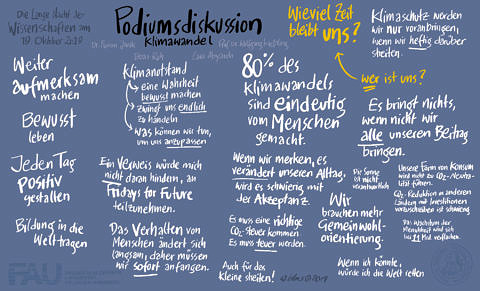 Die Lange Nacht der
Wissenschaften am
19. Oktober 2019
Podiumsdiskussion
Klimawandel
Wieviel Zeit
bleibt uns?
wer ist uns?
Klimaschutz werden
wir nur voranbringen,
wenn wir heftig darüber
streiten.
Weiter
aufmerksam
machen
Bewusst
leben
Jeden Tag
positiv
gestalten
Bildung in die
Welt tragen
Klimanotstand
eine Wahrheit
bewusst machen
zwingt uns endlich
zu handeln
was können wir tun,
um uns anzupassen
Ein Verweis würde mich
nicht daran hindern, an
Fridays for Future
teilzunehmen.
Das Verhalten von
Menschen ändert sich
langsam, daher müssen
wir sofort anfangen.
80% des
Klimawandels
sind eindeutig
vom Menschen
gemacht.
Wenn wir merken, es
verändert unseren Alltag,
wird es schwierig mit
der Akzeptanz.
Es muss eine richtige
CO2-Steuer kommen.
Es muss teuer werden.
Auch für das
Kleine streiten!
Es bringt nichts,
wenn nicht wir
alle unseren Beitrag
bringen.
Die Sonne
ist nicht
verantwortlich
Wir
brauchen mehr
Gemeinwohl-
orientierung.
Unsere Form von Konsum
wird nicht zu CO2-Neutra-
lität führen.
CO2-Reduktion in anderen
Ländern mit Investitionen
voranschieben ist schwierig.
Das Wachstum der
Menschheit wird sich
bei 11 Mrd einpendeln.
Wenn ich könnte,
würde ich die Welt retten
FAU